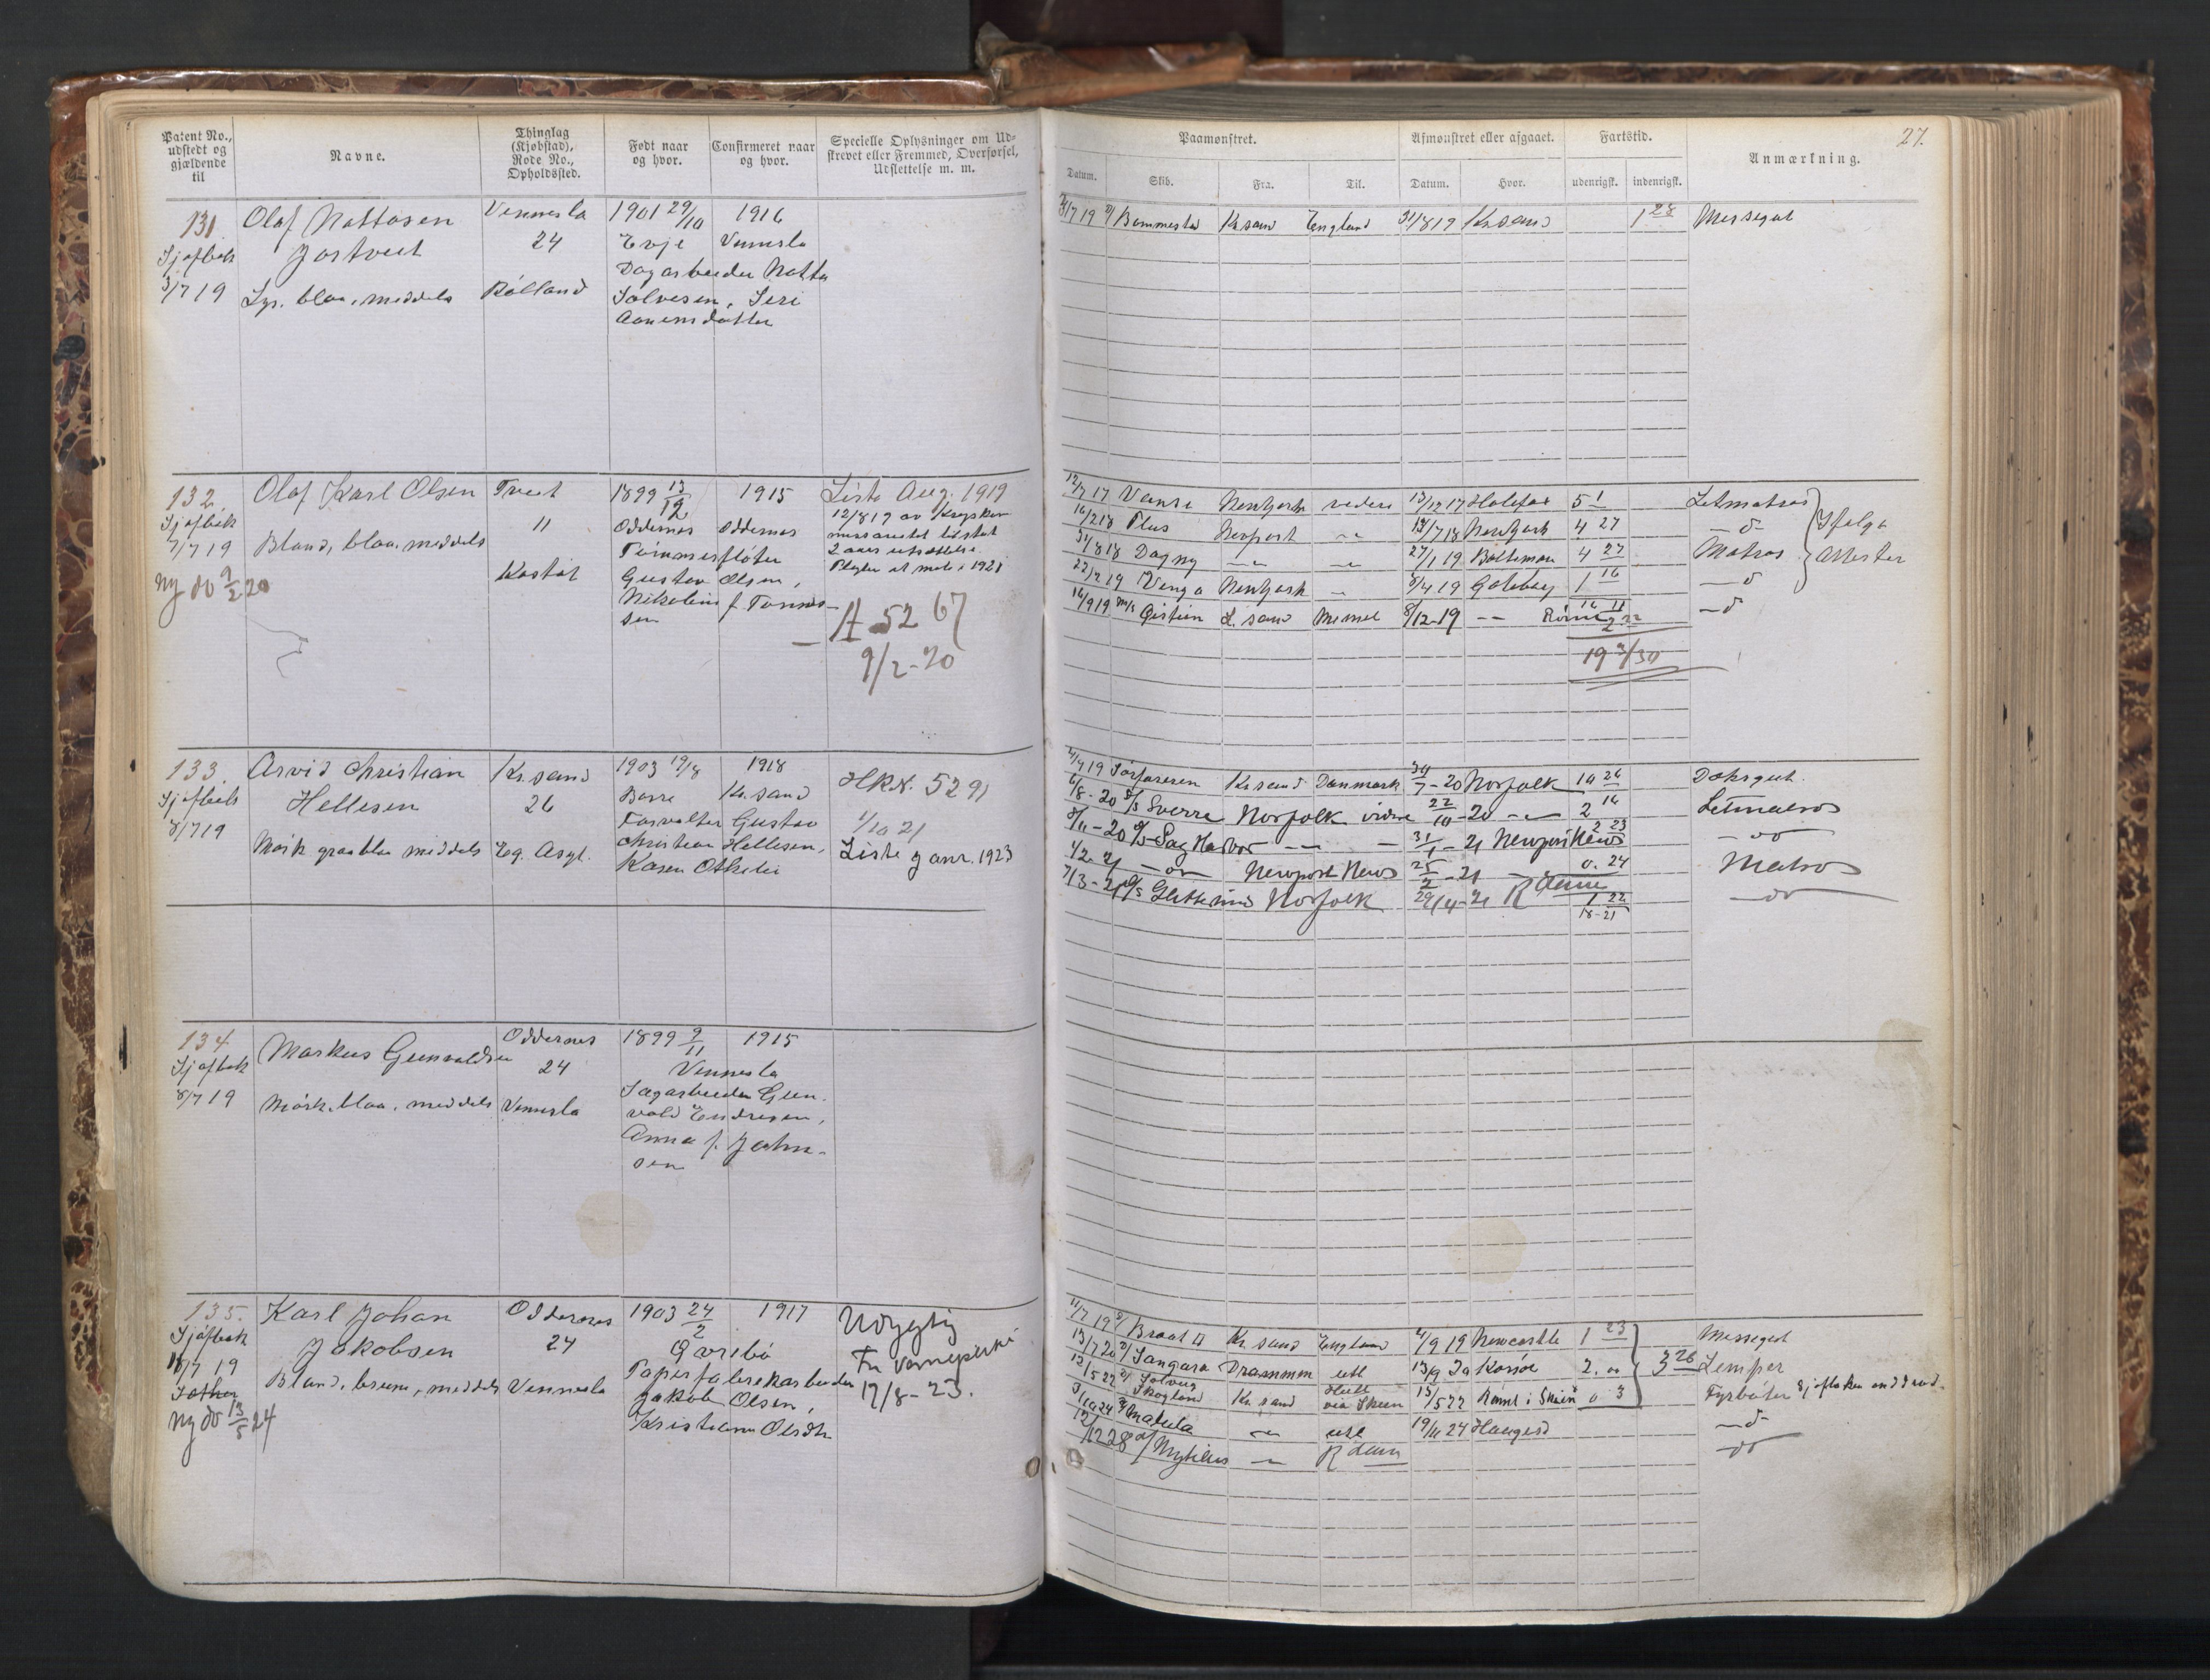 Patent No., udstedt og gjældende til
Navne.
Thinglag (Kjøbstad), Rode No., Opholdssted.
Født naar og hvor.
Confirmeret naar og hvor.
Specielle Oplysninger om Udskrevet eller Fremmed, Overførsel, Udslettelse m. m.
131
Sjøfbok
3/7 19
Olaf Nattosen
Jostveit
Lys. blaa, meddels
Vennesla
24
Bólland
1901 29/10
Evje
1916
Vennesla
Dagarbeider Notto
Solvesen, Siri
Aanensdatter
132.
Sjøfbok
7/7 19
Ny do 9/2 20
Olaf Karl Olsen
Bland, blaa, meddels
Tveit
11
1899 13/12
Oddernes
1915
Oddernes
Tømmerfløter
Gustav Olsen,
Nikoline f. Tønnes-
sen
Liste Aug. 1919
2 aars utsættelse
A 52 67
9/2-20
133.
Sjøfbok
8/7 19
Arvid Christian
Hellesen
Mörk graablaa meddels
Kr.sand
26
Eg. Asyl.
1903 19/8
Borre
1918
Kr. sand
Forvalter Gustav
Christian Hellesen,
Karen Othelie
HRN. 5291
1/10 21
Liste g anr. 1923
134
Sjøfbok
8/7 19
Markus Gunvaldsen
Mörk. blaa. meddels
Oddernes
24
Vennesla
1899 9/11
1915
Vennesla
Sagarbeider Gun-
vald Endresen,
Anna f. Jahn-
sen
135.
Sjøfbok
18/7 19
Ny do 13/5 24
Karl Johan
Jakobsen
Bland. brune, meddels
Oddernes
24
Vennesla
1903 24/2
1917
Øvrebö
Papirfabrikarbeider
Jakob Olsen,
Kristiane Olsdtr
Udygtig
for værnepligt
17/8-23.
27.
Paamønstret.
Afmønstret eller afgaaet.
Fartstid.
Anmærkning.
Datum.
Skib.
Fra.
Til.
Datum.
Hvor.
udenrigsk.
indenrigsk.
3/7 19 Bommestad Kr.sand England 31/8 19 Kr.sand 1 28 Messegut
12/7 17 Vanse NewYork videre 13/12 17 Halifax 5 1 Letmatros
16/2 18 Plus Newport 12/7 18 NewYork 4 27 - d -
31/8 18 Dagny 27/1 19 Baltimore 4 27 Matros
Ifølge Attester
22/2 19 Venga NewYork 8/4 19 Goteborg 1 16 - d
16/9 19 m/s Qistina K. sand Memel 8/12-19 - d
19 9/30
4/9 19 Kr sand Danmark 30/7-20 Norfolk 10 26 Dæksgut.
6/8-20 s/s Sverre Norfolk vidre 22/10-20 2 16 Letmatros
8/11-20 s/s Sag Harbor 31/1-21 Newport News 2 23 - do -
4/2-21 - do - Newport News 25/2-21 0. 24 Matros
7/3-21 s/s Glitterind Norfolk 29/4-21 1 22 - do -
18-21
11/7 19 Braat II Kr. sand England 4/9 19 Newcastle 1 23 Messegut
13/7 20 Sangara Drammen utl 13/9 20 Korsør 2. 00 3 26 Lemper
12/5 22 Solveig Skogland Kr sand Hull via Skien 15/5 22 Rømt i Skien 0 3 Fyrbøter
3/10 24 Matula utl 19/11 24 Haugesd - d -
12/12 28 Mytilus Rdam - do -